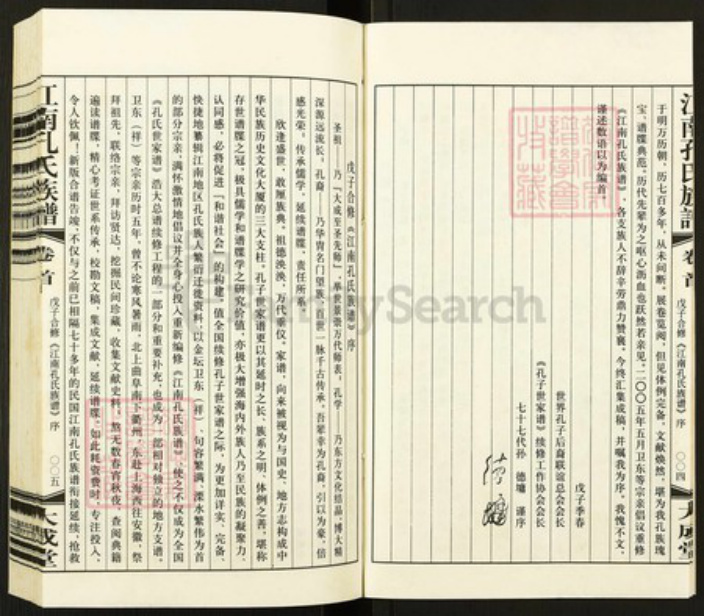 江南孔氏族谱 卷首 戊子合修《江南孔氏族谱》序 〇〇四 大成堂
于明万历朝，历七百多年，从未间断。展卷览阅，但见体例完备，文献焕然，堪为我孔族瑰
宝、谱牒典范。历代先辈为之呕心沥血也跃然若亲见。二〇〇五年五月卫东等宗亲倡议重修
《江南孔氏族谱》，各支族人不辞辛劳鼎力赞襄，今终汇集成稿，并嘱我为序。我愧不文，
谨述数语以为编首。
戊子季春
世界孔子后裔联谊总会会长
《孔子世家谱》续修工作协会会长
七十七代孙 德墉 谨序
戊子合修《江南孔氏族谱》序
圣祖——乃「大成至圣先师」，举世景崇万代师表，孔学——乃东方文化结晶，博大精
深源远流长，孔裔——乃华胄名门望族，百世一脉千古传承。吾辈幸为孔裔，引以为豪，倍
感光荣，传承儒学，延续谱牒，责任所系。
欣逢盛世，敢厘族典。祖德泱泱，万代垂仪。家谱，向来被视为与国史、地方志构成中
华民族历史文化大厦的三大支柱。孔子世家谱更以其延时之长、族系之明、体例之善，堪称
存世谱牒之冠，极具儒学和谱牒学之研究价值，亦极大增强海内外族人乃至民族的凝聚力、
认同感，必将促进「和谐社会」的构建。值全国续修孔子世家谱之际，为更加详实、完备、
快捷地纂辑江南地区孔氏族人繁衍迁徙资料，以金坛卫东（祥）、句容繁满、溧水繁伟为首
的部分宗亲，满怀激情地倡议并全身心投入重新编修《江南孔氏族谱》，使之不仅成为全国
《孔氏世家谱》浩大总谱续修工程的一部分和重要补充，也成为一部相对独立的地方支谱。
卫东（祥）等宗亲历时五年，曾不论寒风暑雨，北上曲阜南下衢州，东赴上海西往安徽，祭
拜祖先，联络宗亲，拜访贤达，挖掘民间珍藏，收集文献史料，熬无数春宵秋夜，查阅典籍
遍读谱牒，精心考证世系传承，校勘文稿，集成文献，延续谱牒。如此耗资费时，专注投入，
令人钦佩！新版合谱告竣，不仅与之前已相隔七十多年的民国江南孔氏族谱衔接延续，抢救
江南孔氏族谱 卷首 戊子合修《江南孔氏族谱》序 〇〇五 大成堂